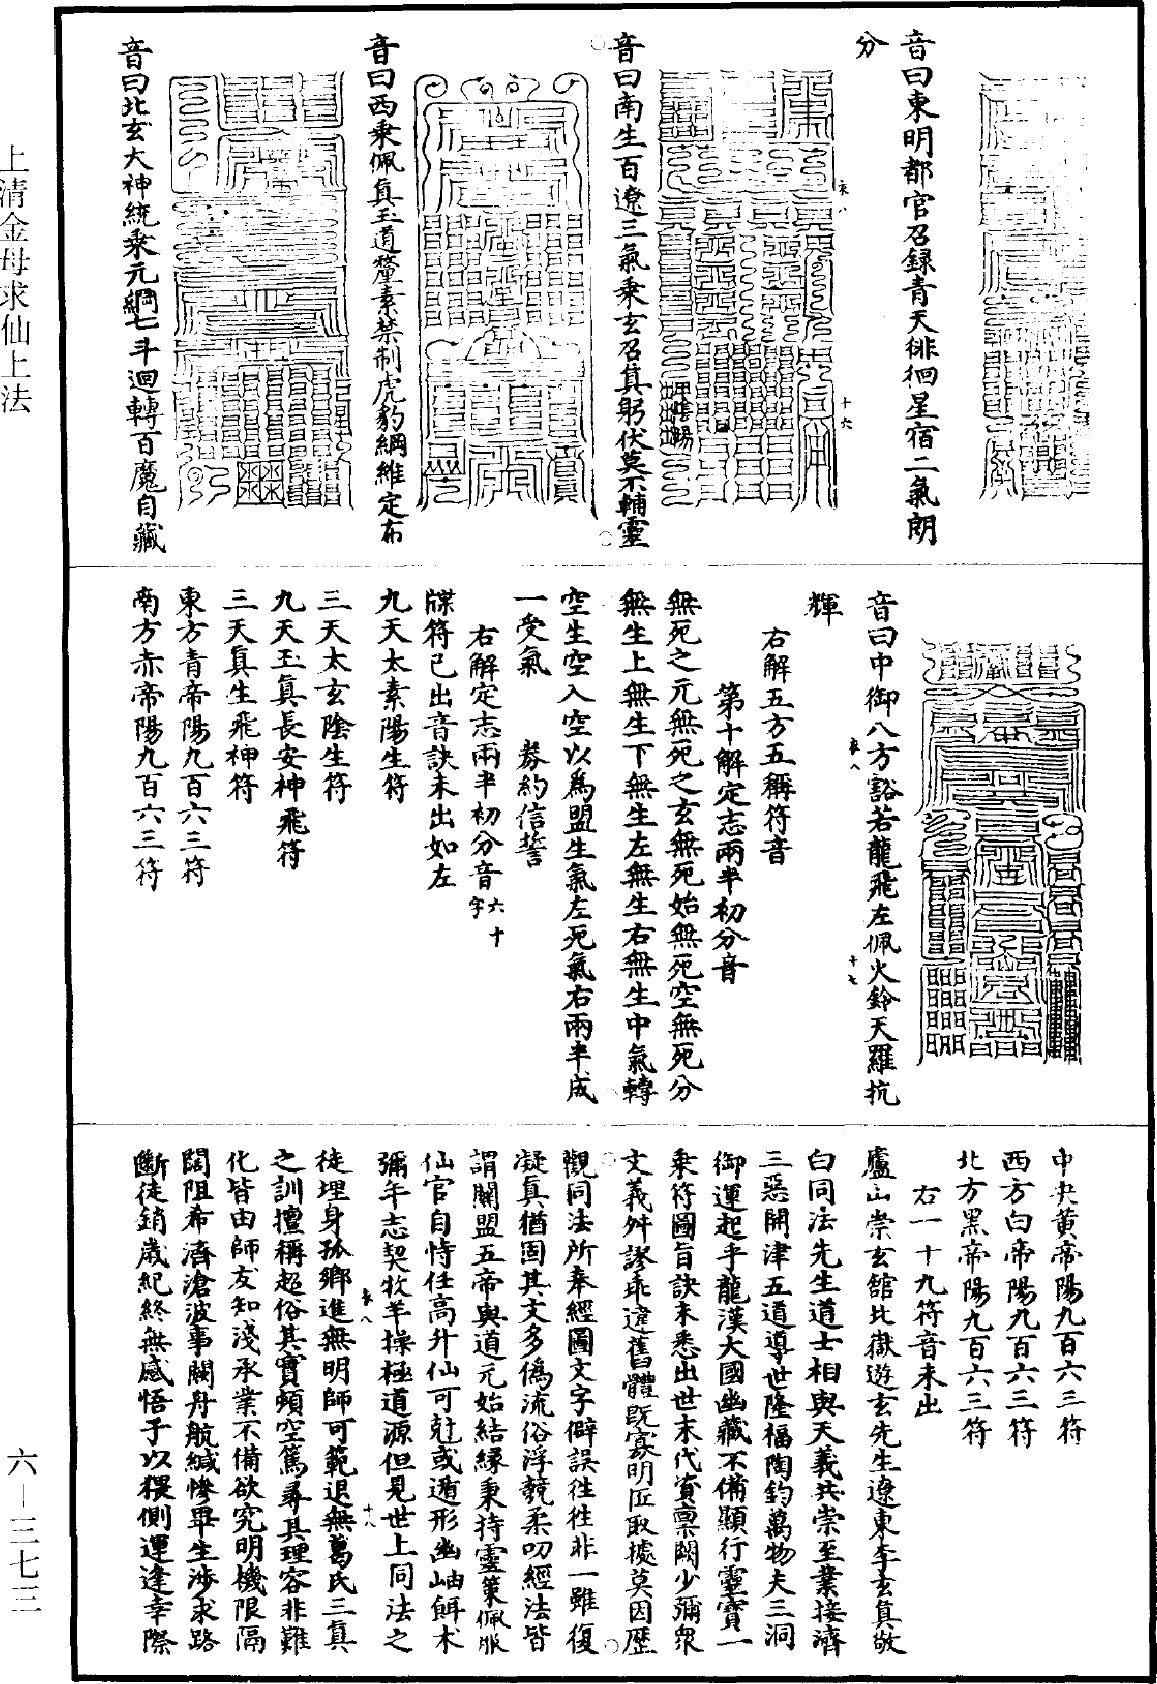 音曰東明都官召録青天徘徊星宿二氣朗
分
音曰南生百遼三氣乘玄召真躬伏莫不輔靈
音曰西乘佩真玉道攝素禁制虎豹綱維定布
音曰北玄大神統乘元綱七斗迴轉百魔自藏
音曰中御八方豁若龍飛左佩火鈴天羅抗
輝
右解五方五稱符音
第十解定志兩半初分音
無死之元無死之玄無死始無死空無死分
無生上無生下無生左無生右無生中氣轉
空生空入空以爲盟生氣左死氣右兩半成
一受氣 券約信誓
右解定志兩半初分音六十字
牒符已出音訣未出如左
九天太素陽生符
三天太玄陰生符
九天玉真長安神飛符
三天真生飛神符
東方青帝陽九百六三符
南方赤帝陽九百六三符
中央黄帝陽九百六三符
西方白帝陽九百六三符
北方黑帝陽九百六三符
右一十九符音未出
廬山崇玄舘北嶽遊玄先生遼東李玄真敬
白同法先生道士相與天義共崇至業接濟
三惡開津五道導世隆福陶鈞萬物夫三洞
御運起乎龍漢大國幽藏不備顯行靈寳一
乘符圖旨訣未悉出世末代資禀闕少彌衆
文義舛謬乖違舊體既寡明匠取據莫因歴
觀同法所奉經圖文字僻誤往往非一雖復
凝真猶固其文多僞流俗浮競柔叨經法皆
謂關盟五帝與道元始結縁秉持靈策佩服
仙官自恃任高升仙可尅或遁形幽岫餌术
彌年志契牧羊操極道源但見世上同法之
徒埋身孤鄉進無明師可範退無葛氏三真
之訓擅稱超俗其實頻空篤尋其理容非難
化皆由師友知淺承業不備欲究明機限隔
闊阻希濟滄波事關舟航緘慘畢生渉求路
斷徒銷歳紀終無感悟予以猥側運逢幸際
衣八
十六
衣八
十七
衣八
十八
上清金母求仙上法
六—三七三